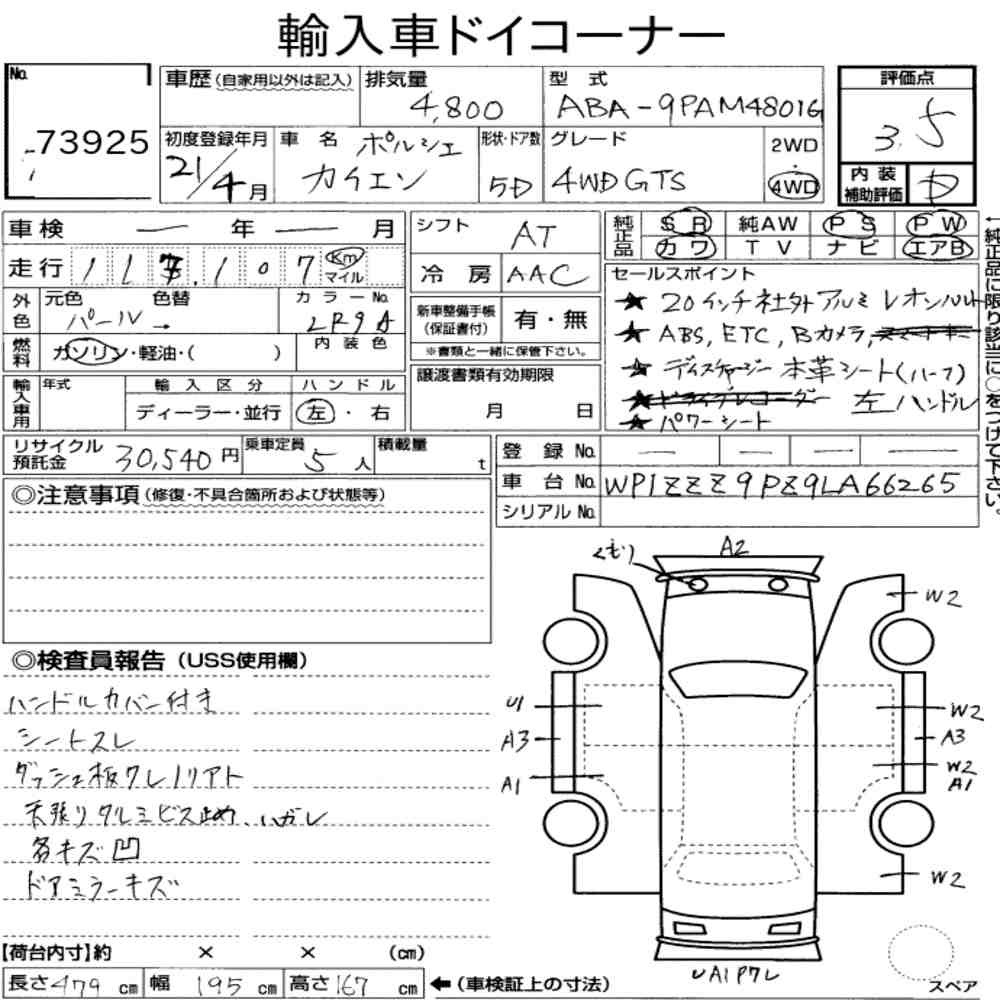 輸入車ドイコーナー
No.
73925
車歴(自家用以外は記入)
排気量
4,800
型式
ABA-9PAM4801G
評価点
3.5
初度登録年月
21/4月
車名
ポルシェ
カイエン
形状・ドア数
5D
グレード
4WD GTS
2WD
4WD
内装
補助評価
D
車検 ー 年 ー 月
シフト
AT
純正品
SR 純AW PS PW
カワ TV ナビ エアB
走行
Km
マイル
冷房 AAC
セールスポイント
★ 20インチ社外アルミ レオンハルト
★ ABS, ETC, Bカメラ,
★ ディスチャージー 本革シート(ハーフ)
★ 左ハンドル
★ パワーシート
←純正品に限り該当に○をつけて下さい。
外色
元色 色替
パール →
カラーNo.
LR9A
内装色
新車整備手帳
(保証書付)
有・無
※書類と一緒に保管下さい。
燃料
ガソリン・軽油・( )
輸入車用
年式
輸入区分
ディーラー・並行
ハンドル
左・右
譲渡書類有効期限
月 日
リサイクル
預託金
30,540円
乗車定員
5人
積載量
t
登録No.
車台No. WP1ZZZ9PZ9LA66265
シリアルNo.
◎注意事項(修復・不具合箇所および状態等)
◎検査員報告(USS使用欄)
ハンドルカバー付き
シートスレ
ダッシュ板ワレノリアト
天張りタルミビス止め、ハガレ
各キズ凹
ドアミラーキズ
くもり
A2
W2
U1
A3
A1
W2
A3
W2
A1
W2
UA1Pワレ
スペア
【荷台内寸】約 × × (cm)
長さ479cm 幅195cm 高さ167cm ←(車検証上の寸法)